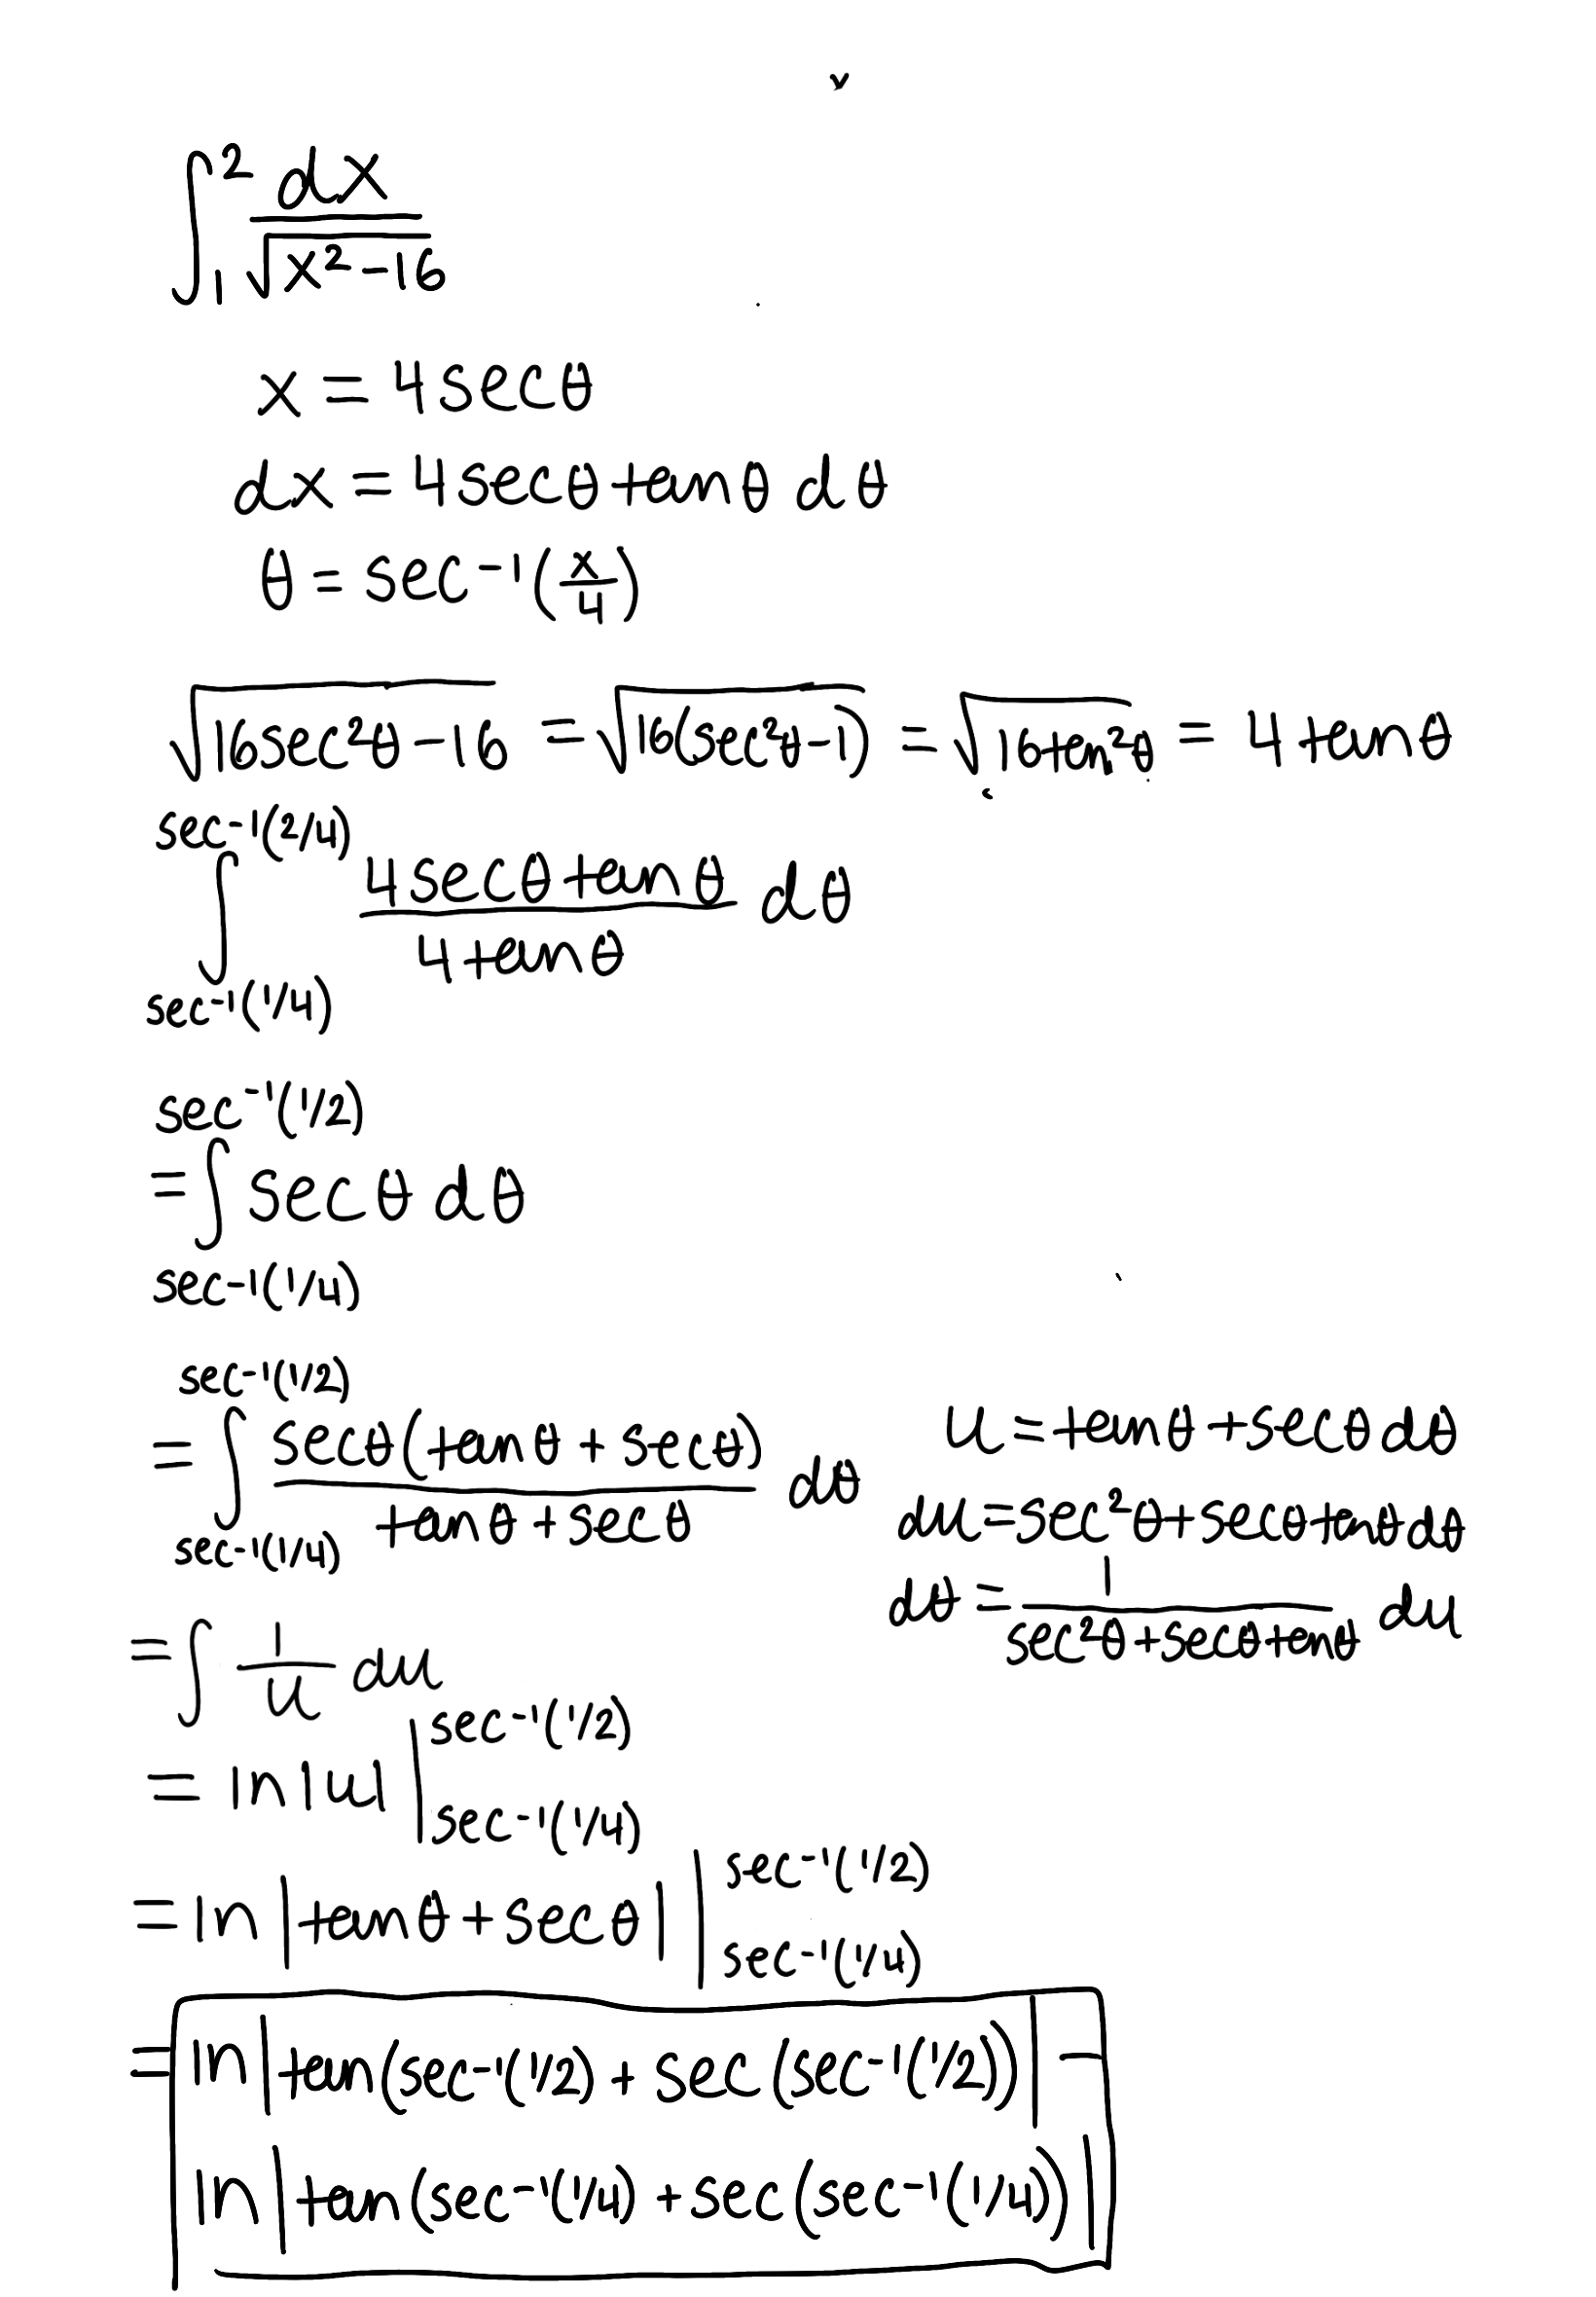 ∫₁² dx / √(x² - 16)
x = 4 sec θ
dx = 4 sec θ tan θ d θ
θ = sec⁻¹(x/4)
√(16 sec²θ - 16) = √(16(sec²θ - 1)) = √(16 tan²θ) = 4 tan θ
sec⁻¹(2/4)
∫ (4 sec θ tan θ) / (4 tan θ) d θ
sec⁻¹(1/4)
sec⁻¹(1/2)
= ∫ sec θ d θ
sec⁻¹(1/4)
sec⁻¹(1/2)
= ∫ (sec θ (tan θ + sec θ)) / (tan θ + sec θ) dθ
sec⁻¹(1/4)
u = tan θ + sec θ dθ
du = sec²θ + sec θ tan θ dθ
dθ = 1 / (sec²θ + sec θ tan θ) du
= ∫ 1/u du
= ln |u| | sec⁻¹(1/2) sec⁻¹(1/4)
= ln |tan θ + sec θ| | sec⁻¹(1/2) sec⁻¹(1/4)
= ln | tan(sec⁻¹(1/2) + sec(sec⁻¹(1/2)) | -
ln | tan(sec⁻¹(1/4) + sec(sec⁻¹(1/4)) |